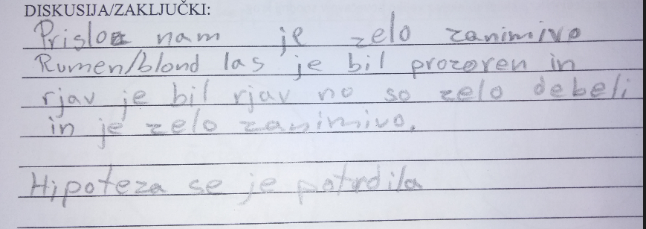 DISKUSIJA/ZAKLJUČKI:
Prislo nam je zelo zanimivo
Rumen/blond las je bil prozoren in
rjav je bil rjav no so zelo debeli
in je zelo zanimivo.
Hipoteza se je potrdila